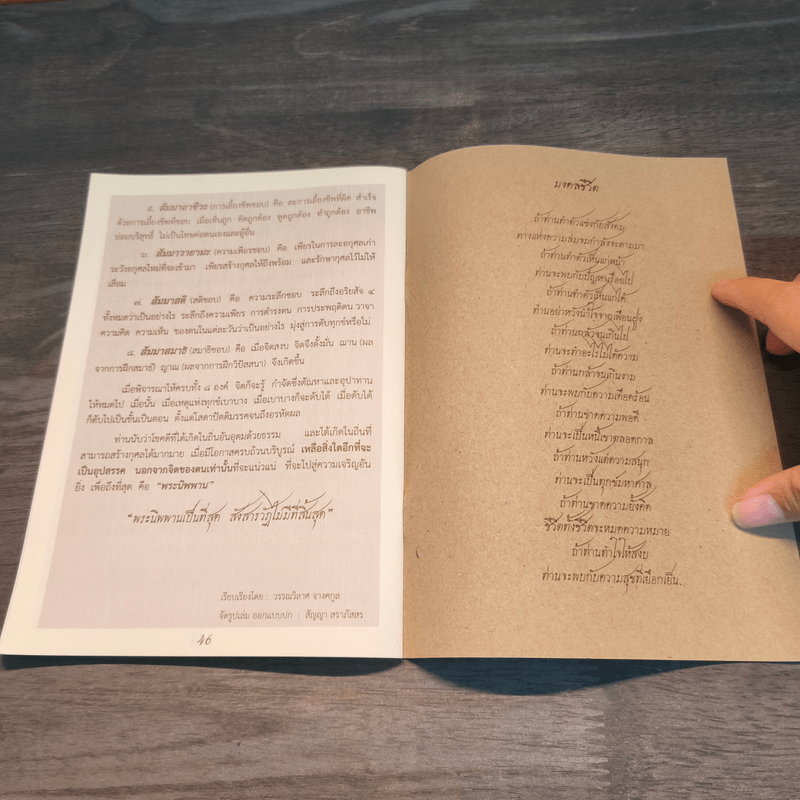 ๕. สัมมาอาชีวะ (การเลี้ยงชีพชอบ) คือ ละการเลี้ยงชีพที่ผิด สำเร็จ
ด้วยการเลี้ยงชีพที่ชอบ เมื่อเห็นถูก คิดถูกต้อง พูดถูกต้อง ทำถูกต้อง อาชีพ
ย่อมบริสุทธิ์ ไม่เป็นโทษต่อตนเองและผู้อื่น
๖. สัมมาวายามะ (ความเพียรชอบ) คือ เพียรในการละอกุศลเก่า
ระวังอกุศลใหม่ที่จะเข้ามา เพียรสร้างกุศลให้ถึงพร้อม และรักษากุศลไว้ไม่ให้
เสื่อม
๗. สัมมาสติ (สติชอบ) คือ ความระลึกชอบ ระลึกถึงอริยสัจ ๔
ทั้งหมดว่าเป็นอย่างไร ระลึกถึงความเพียร การดำรงตน การประพฤติตน วาจา
ความคิด ความเห็น ของตนในแต่ละวันว่าเป็นอย่างไร มุ่งสู่การดับทุกข์หรือไม่
๘. สัมมาสมาธิ (สมาธิชอบ) คือ เมื่อจิตสงบ จิตจึงตั้งมั่น ฌาน (ผล
จากการฝึกสมาธิ) ญาณ (ผลจากการฝึกวิปัสสนา) จึงเกิดขึ้น
เมื่อพิจารณาให้ครบทั้ง ๘ องค์ จิตก็จะรู้ กำจัดซึ่งตัณหาและอุปาทาน
ให้หมดไป เมื่อนั้น เมื่อเหตุแห่งทุกข์เบาบาง เมื่อเบาบางก็จะดับได้ เมื่อดับได้
ก็ดับไปเป็นชั้นเป็นตอน ตั้งแต่โสดาปัตติมรรคจนถึงอรหัตผล
ท่านนับว่าโชคดีที่ได้เกิดในถิ่นอันอุดมด้วยธรรม และได้เกิดในถิ่นที่
สามารถสร้างกุศลได้มากมาย เมื่อมีโอกาสครบถ้วนบริบูรณ์ เหลือสิ่งใดอีกที่จะ
เป็นอุปสรรค นอกจากจิตของตนเท่านั้นที่จะแน่วแน่ ที่จะไปสู่ความเจริญอัน
ยิ่ง เพื่อถึงที่สุด คือ "พระนิพพาน"
"พระนิพพานเป็นที่สุด สังสารวัฏไม่มีที่สิ้นสุด"
เรียบเรียงโดย : วรรณวิลาศ จางคกูล
จัดรูปเล่ม ออกแบบปก : สัญญา สราภัสสร
46
มงคลชีวิต
ถ้าท่านทำตัวแข่งกับสังคม
ทางแห่งความล่มจมกำลังจะตามมา
ถ้าท่านทำตัวเห็นแก่หน้า
ท่านจะพบกับปัญหาเรื่อยไป
ถ้าท่านทำตัวเห็นแก่ได้
ท่านอย่าหวังน้ำใจจากเพื่อนฝูง
ถ้าท่านกลัวจนเกินไป
ท่านจะทำอะไรไม่ได้ความ
ถ้าท่านกล้าจนเกินงาม
ท่านจะพบกับความเดือดร้อน
ถ้าท่านขาดความพอดี
ท่านจะเป็นหนี้เขาตลอดกาล
ถ้าท่านหวังแต่ความสนุก
ท่านจะเป็นทุกข์มหาศาล
ถ้าท่านขาดความยั้งคิด
ชีวิตทั้งชีวิตจะหมดความหมาย
ถ้าท่านทำใจให้สงบ
ท่านจะพบกับความสุขที่เยือกเย็น.